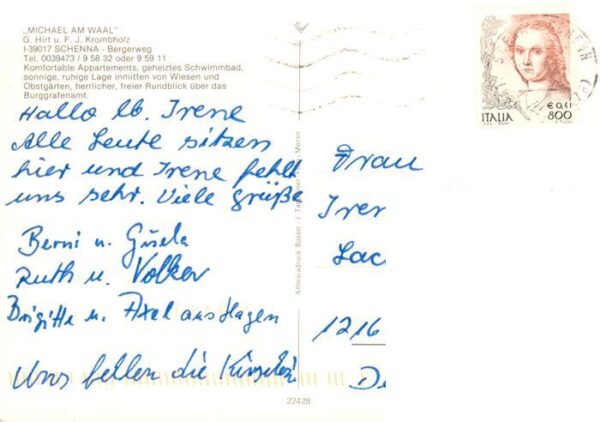 „MICHAEL AM WAAL"
G. Hirt u. F. J. Krombholz
I-39017 SCHENNA - Bergerweg
Tel. 0039473 / 9 58 32 oder 9 59 11
Komfortable Appartements, geheiztes Schwimmbad,
sonnige, ruhige Lage inmitten von Wiesen und
Obstgärten, herrlicher, freier Rundblick über das
Burggrafenamt.
Hallo lb. Irene
Alle Leute sitzen
hier und Irene fehlt
uns sehr. Viele Grüße
Berni u. Gisela
Ruth u. Volker
Brigitte u. Axel aus Hagen
Uns fehlen die
Athesiadruck Bozen
22428
€ 0,41
ITALIA 800
Frau
Irer
Lac
1216